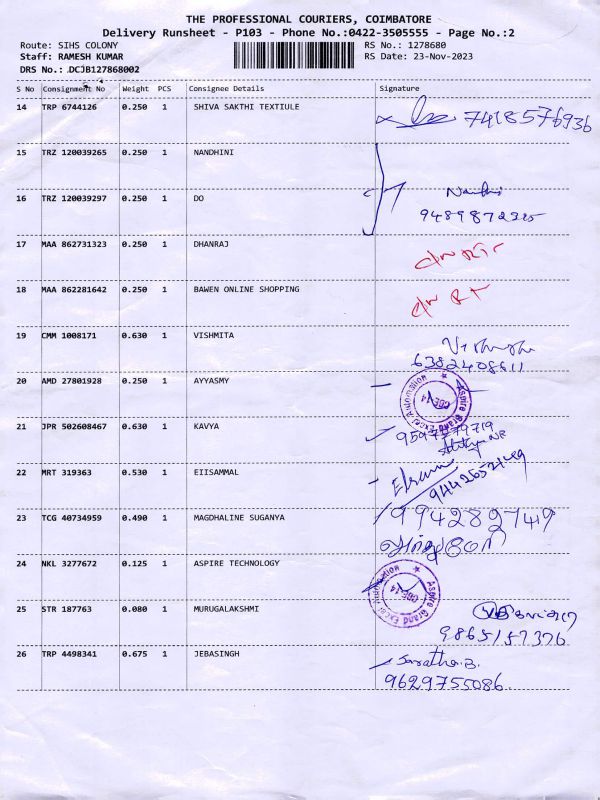 THE PROFESSIONAL COURIERS, COIMBATORE
Delivery Runsheet - P103 - Phone No.:0422-3505555 - Page No.:2
Route: SIHS COLONY RS No.: 1278680
Staff: RAMESH KUMAR RS Date: 23-Nov-2023
DRS No.: DCJB127868002
S No Consignment No Weight PCS Consignee Details Signature
14 TRP 6744126 0.250 1 SHIVA SAKTHI TEXTIULE 7418576936
15 TRZ 120039265 0.250 1 NANDHINI
16 TRZ 120039297 0.250 1 DO Nandhi
9489872325
17 MAA 862731323 0.250 1 DHANRAJ
18 MAA 862281642 0.250 1 BAWEN ONLINE SHOPPING
19 CMM 1008171 0.630 1 VISHMITA
6382408611
20 AMD 27801928 0.250 1 AYYASMY
Aspire Grand Excel Automation
CBE-14
21 JPR 502608467 0.630 1 KAVYA
22 MRT 319363 0.530 1 EIISAMMAL
23 TCG 40734959 0.490 1 MAGDHALINE SUGANYA 994282749
24 NKL 3277672 0.125 1 ASPIRE TECHNOLOGY
Aspire Grand Excel Automation
CBE-14
25 STR 187763 0.080 1 MURUGALAKSHMI
9865157376
26 TRP 4498341 0.675 1 JEBASINGH Saratha.B.
9629755086.